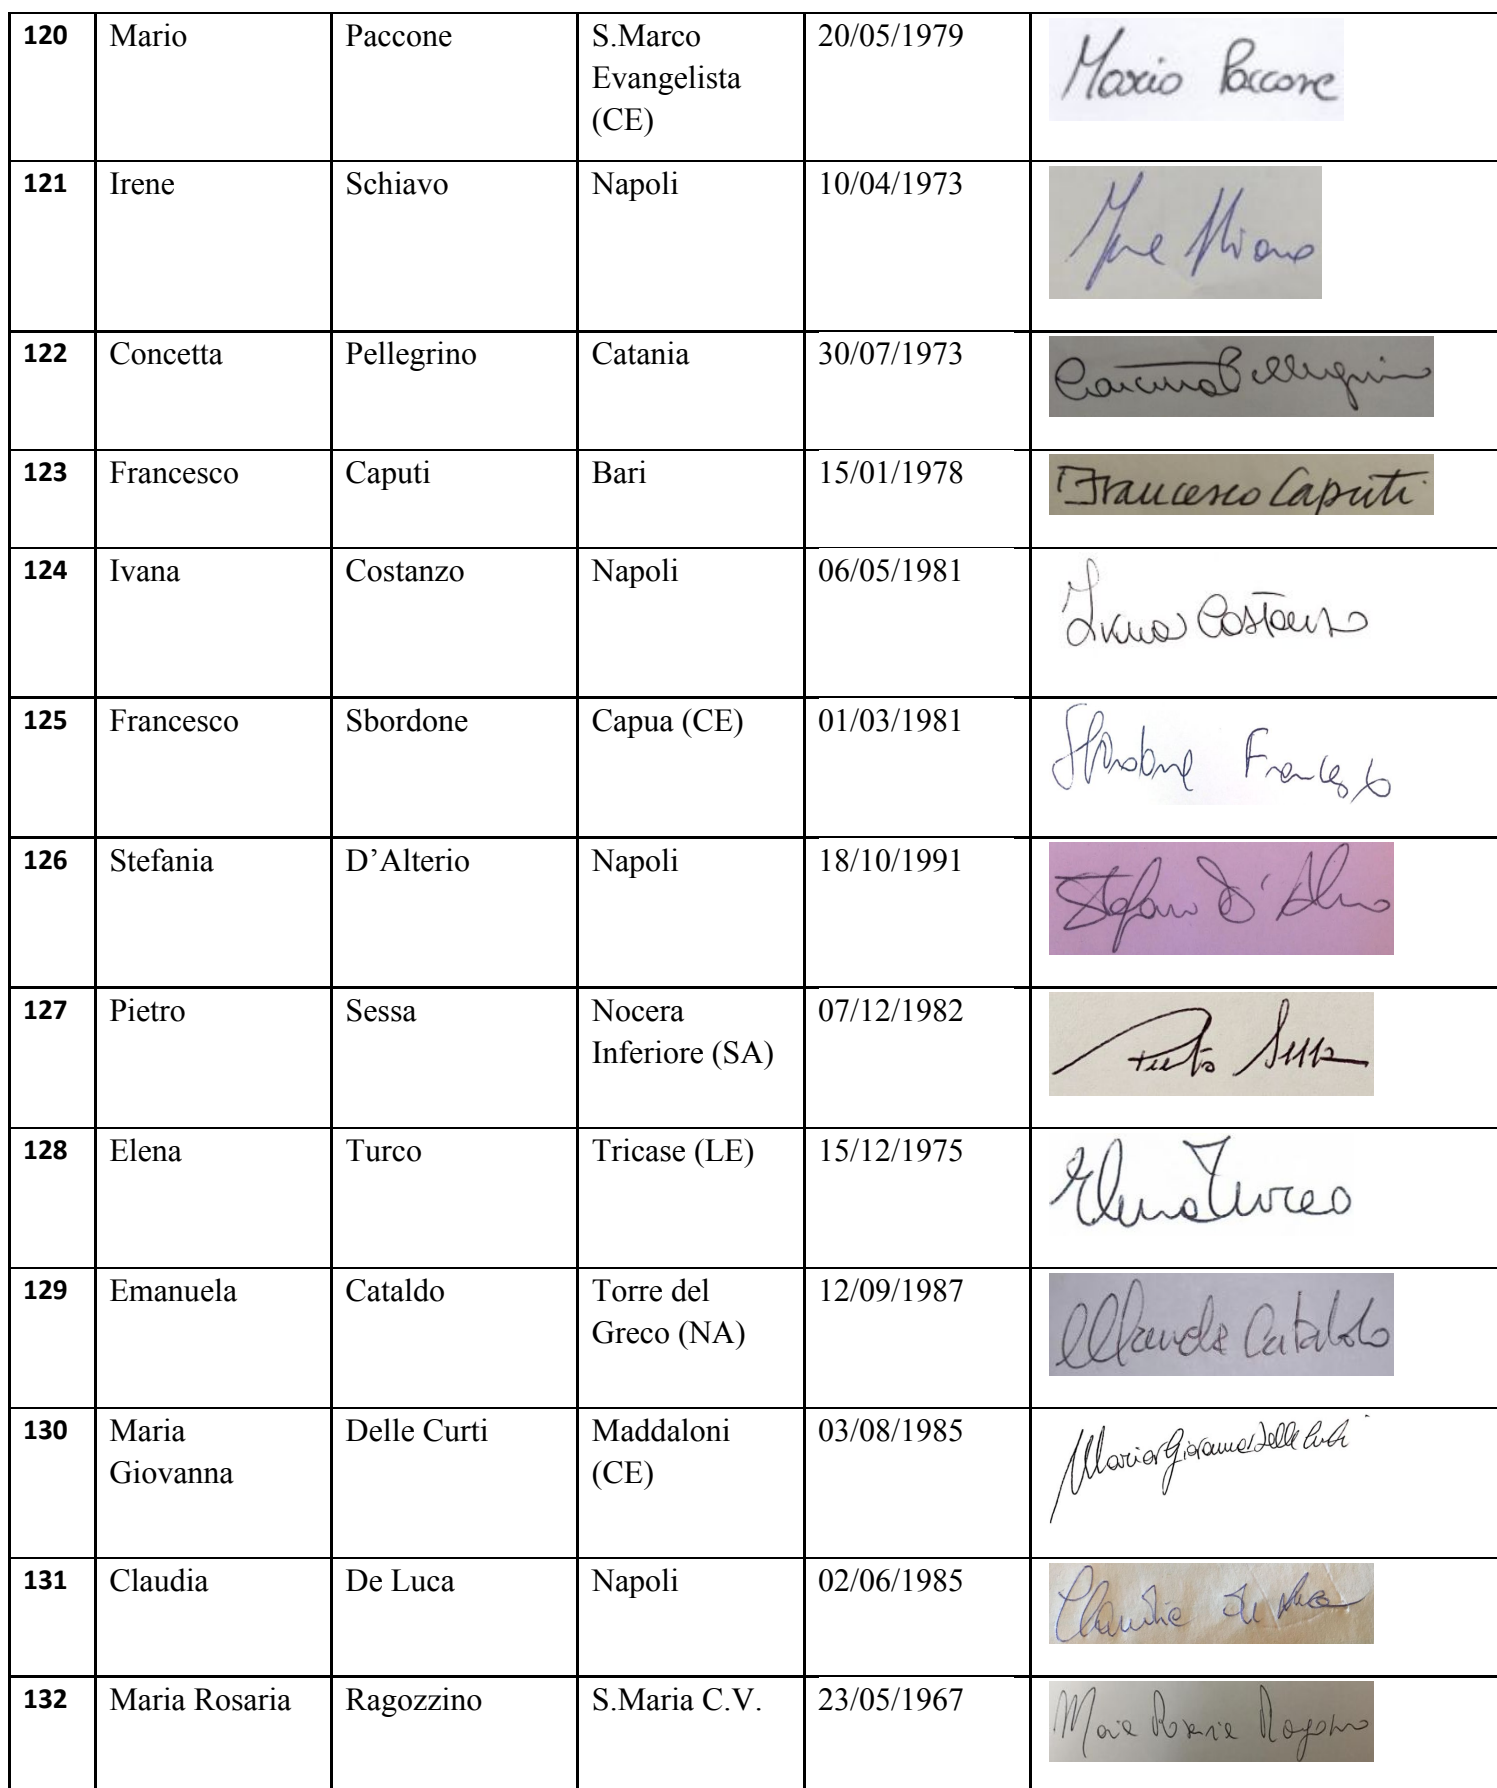 120 Mario Paccone S.Marco Evangelista (CE) 20/05/1979 Mario Paccone
121 Irene Schiavo Napoli 10/04/1973
122 Concetta Pellegrino Catania 30/07/1973
123 Francesco Caputi Bari 15/01/1978 Francesco Caputi
124 Ivana Costanzo Napoli 06/05/1981 Ivana Costanzo
125 Francesco Sbordone Capua (CE) 01/03/1981 Sbordone Francesco
126 Stefania D’Alterio Napoli 18/10/1991
127 Pietro Sessa Nocera Inferiore (SA) 07/12/1982 Pietro Sessa
128 Elena Turco Tricase (LE) 15/12/1975 Elena Turco
129 Emanuela Cataldo Torre del Greco (NA) 12/09/1987 Cataldo
130 Maria Giovanna Delle Curti Maddaloni (CE) 03/08/1985 Maria Giovanna Delle Curti
131 Claudia De Luca Napoli 02/06/1985 Claudia De Luca
132 Maria Rosaria Ragozzino S.Maria C.V. 23/05/1967 Maria Rosaria Ragozzino